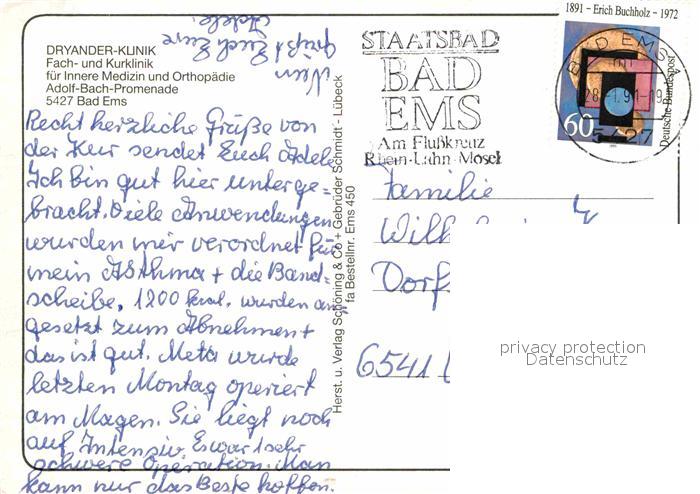 DRYANDER-KLINIK
Fach- und Kurklinik
für Innere Medizin und Orthopädie
Adolf-Bach-Promenade
5427 Bad Ems
Recht herzliche Grüße von
der Kur sendet Euch Adele
Ich bin gut hier unterge=
bracht. Viele Anwendungen
wurden mir verordnet für
mein Asthma + die Band=
scheibe, 1200 kcal. wurden an
gesetzt zum Abnehmen +
das ist gut. Meta wurde
letzten Montag operiert
am Magen. Sie liegt noch
auf Intensiv. Es war 1 sehr
schwere Operation. Man
kann nur das Beste hoffen.
grüßt Euch Eure
Adele
Herst. u. Verlag Schöning & Co + Gebrüder Schmidt - Lübeck
fa Bestellnr. Ems 450
STAATSBAD
BAD
EMS
Am Flußkreuz
Rhein-Lahn-Mosel
1891 - Erich Buchholz - 1972
60
Deutsche Bundespost
BAD EMS 1
5427
Familie
Wilh
Dorf
6541
privacy protection
Datenschutz